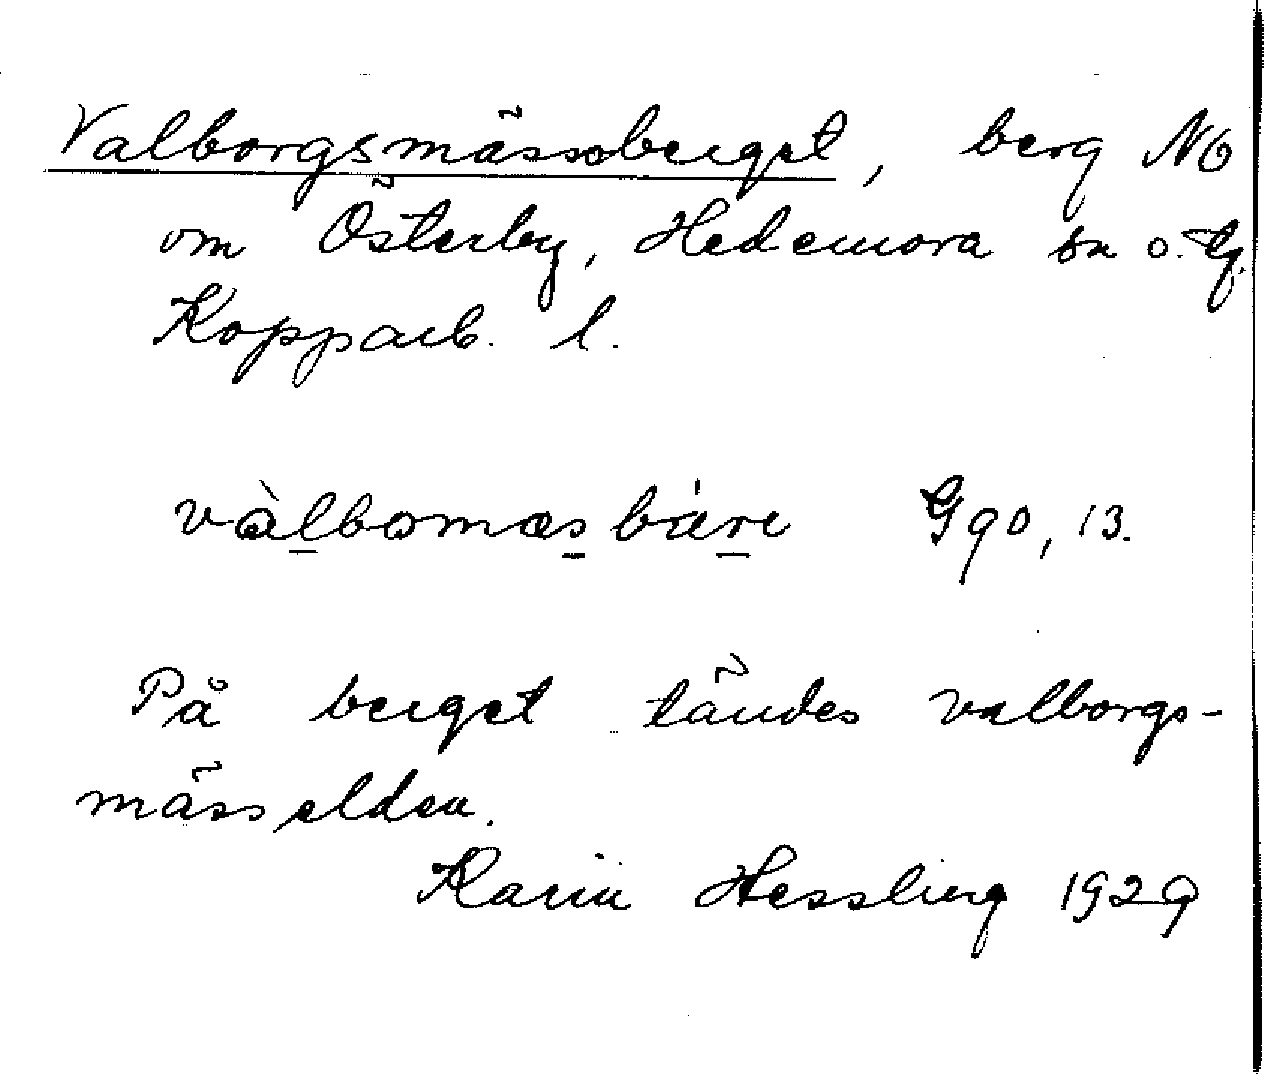 Valborgsmässoberget, berg NÖ
om Österby, Hedemora sn o. tg.
Kopparb. l.
vàlbomæsbære Gqo, 13.
På berget tändes valborgs-
mässelden.
Karin Hessling 1929